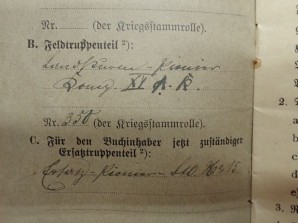 Nr. (der Kriegsstammrolle).
B. Feldtruppenteil ²):
Landsturm-Pionier
Komp. XI. A. K.
Nr. 350 (der Kriegsstammrolle).
C. Für den Buchinhaber jetzt zuständiger
Ersatztruppenteil ²):
Ersatz-Pionier-
2.